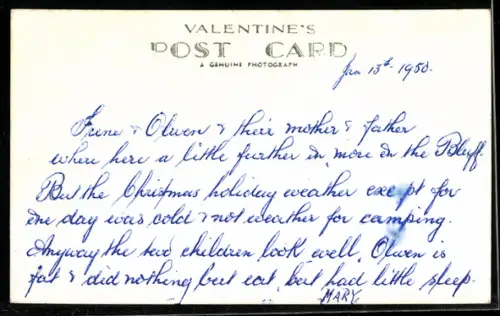 VALENTINE'S
POST CARD
A GENUINE PHOTOGRAPH
Jan 13th 1950.
Irene & Olwen & their mother & father
where here a little further in, more in the Bluff.
But the Christmas holiday weather except for
one day was cold & not weather for camping.
Anyway the two children look well, Olwen is
fat & did nothing but eat, but had little sleep.
MARY